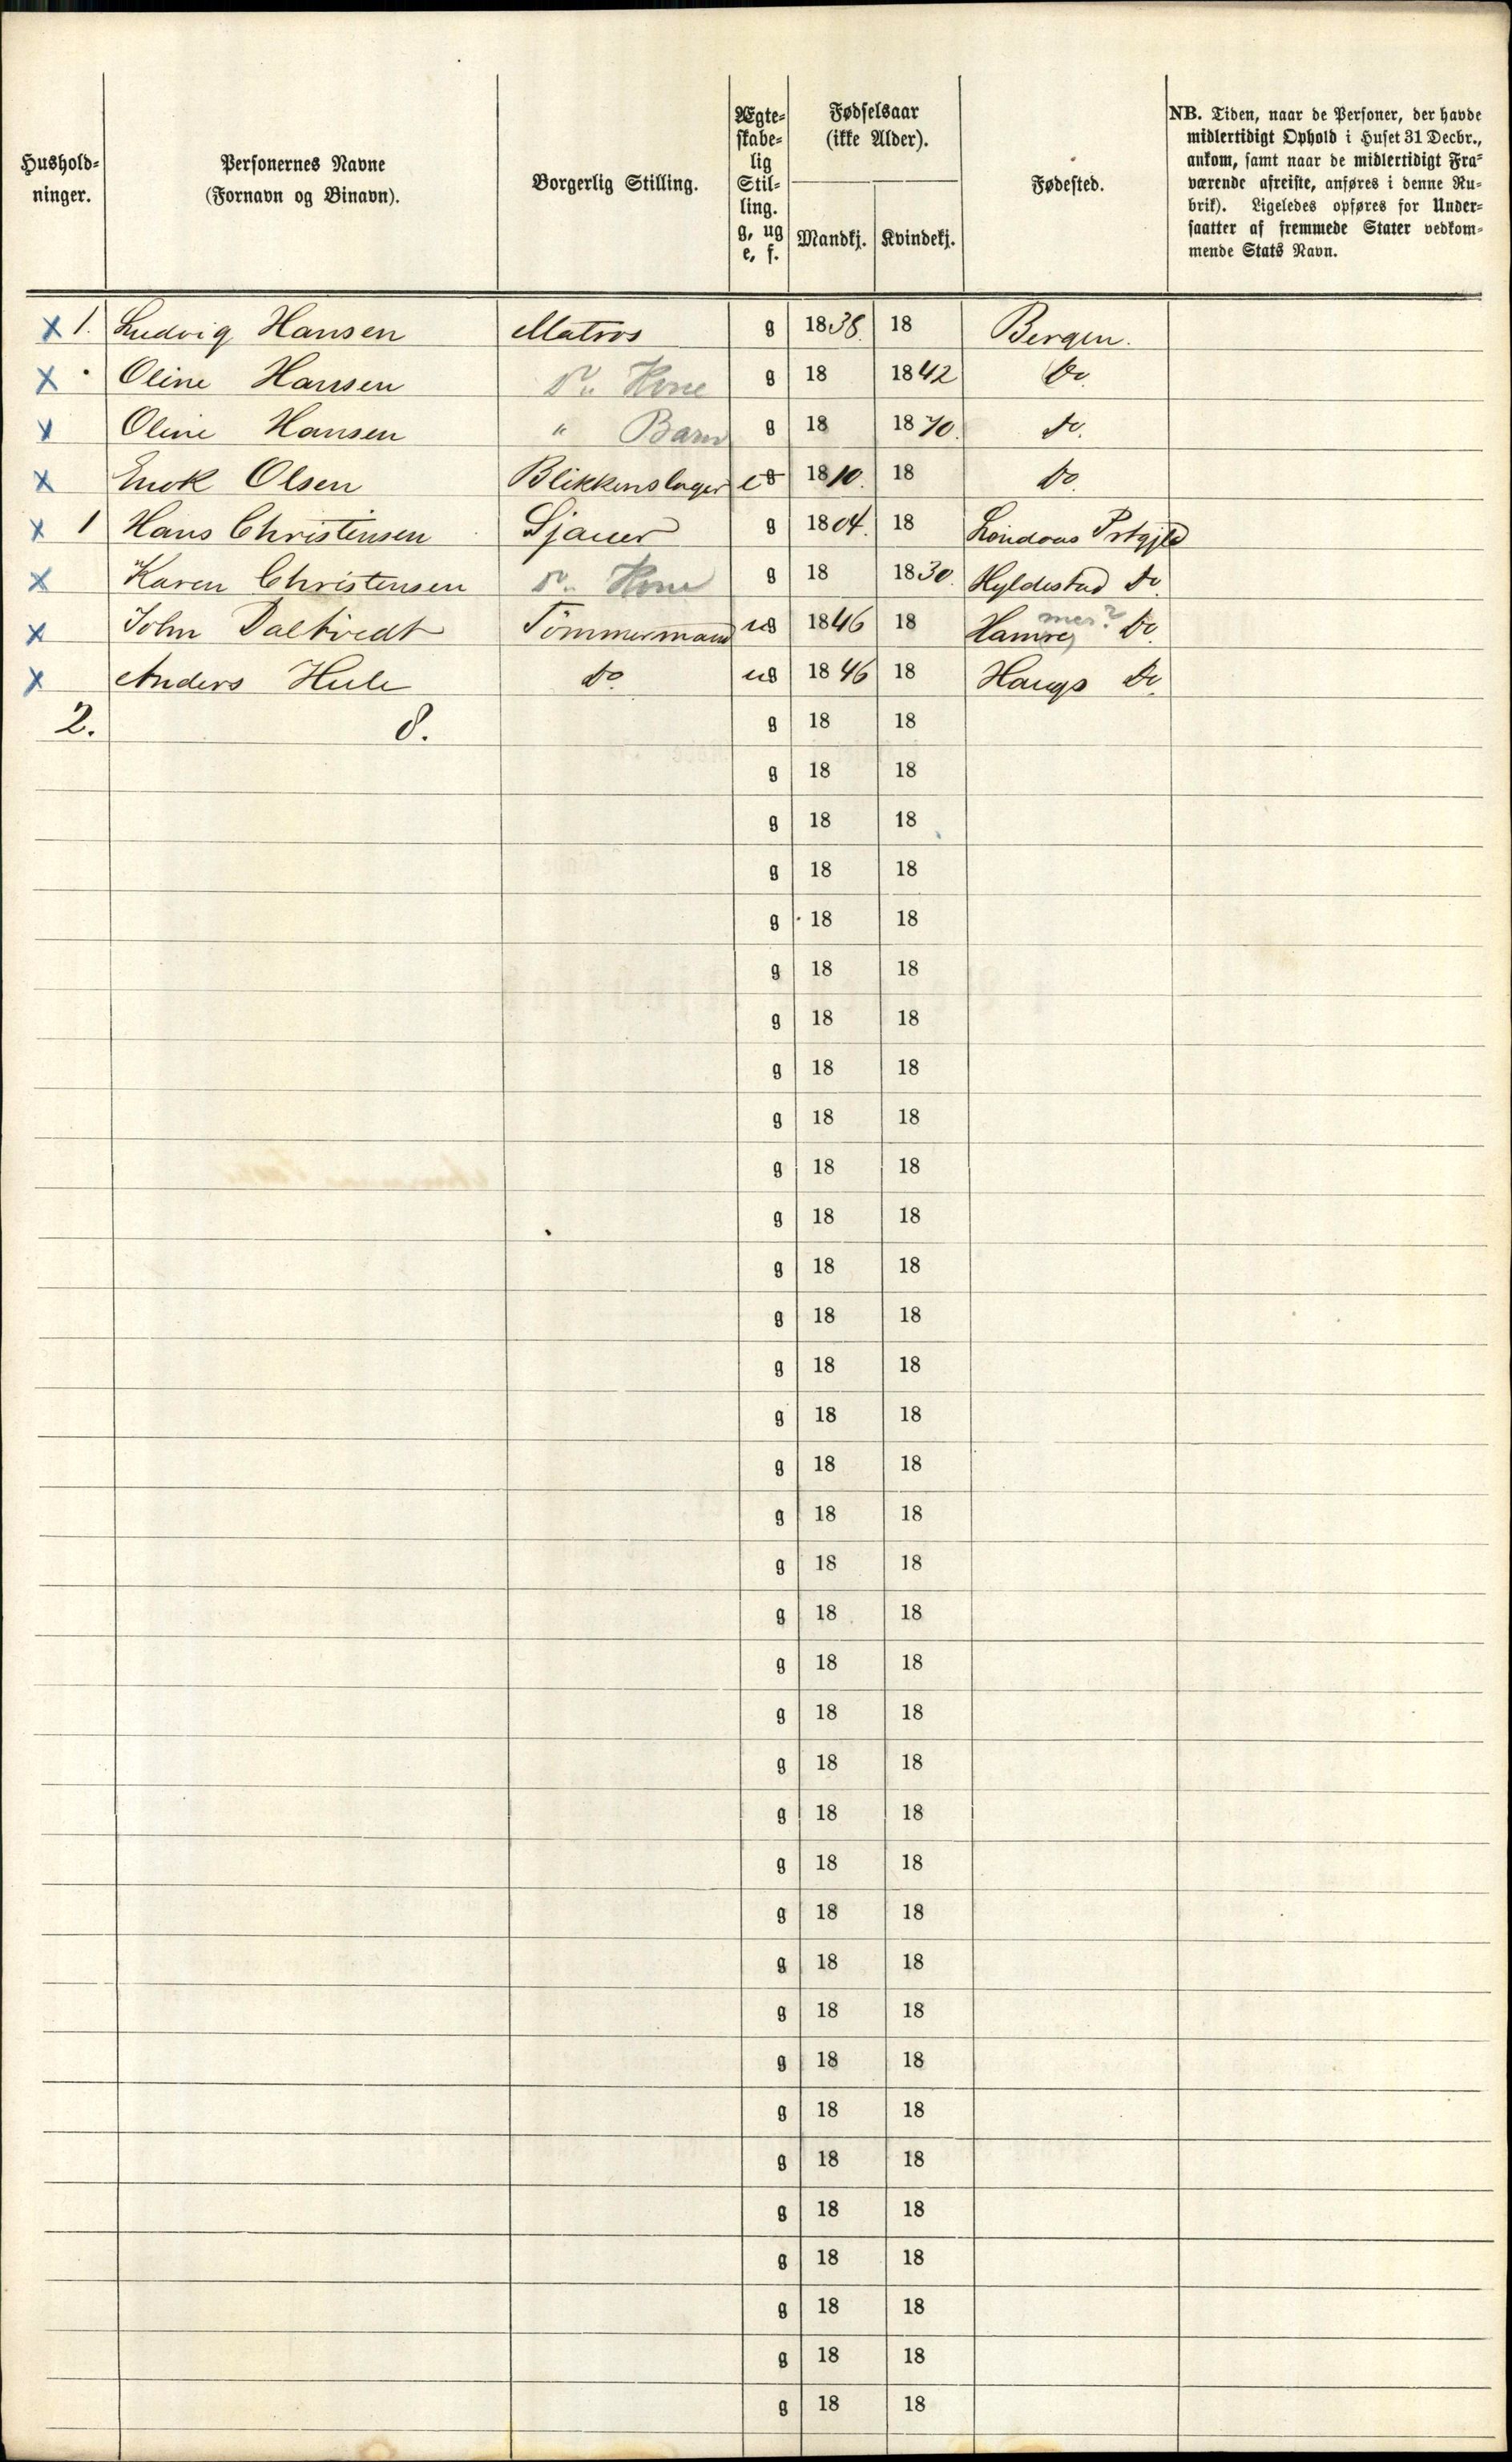 Hushold-
ninger.
Personernes Navne
(Fornavn og Binavn).
Borgerlig Stilling.
Ægte-
skabe-
lig
Stil-
ling.
g, ug
e, f.
Fødselsaar
(ikke Alder).
Mandkj. Kvindekj.
Fødested.
NB. Tiden, naar de Personer, der havde
midlertidigt Ophold i Huset 31 Decbr.,
ankom, samt naar de midlertidigt Fra-
værende afreiste, anføres i denne Ru-
brik). Ligeledes opføres for Under-
saatter af fremmede Stater vedkom-
mende Stats Navn.
x 1. Ludvig Hansen Matros g 1838. 18 Bergen.
x Oline Hansen Kone g 18 1842 Do.
x Oline Hansen " Barn g 18 1870. Do.
x Enok Olsen Blikkenslager e g 1810. 18 Do.
x 1 Hans Christensen Sjauer g 1804. 18 Lindaas Prtgjld
x Karen Christensen Kone g 18 1830. Hyldestad Do.
x John Daltvedt Tömmermand ug 1846 18 Hamre mer? Do.
x Anders Hule Do. ug 1846 18 Haugs Do.
2. 8. g 18 18
g 18 18
g 18 18
g 18 18
g 18 18
g 18 18
g 18 18
g 18 18
g 18 18
g 18 18
g 18 18
g 18 18
g 18 18
g 18 18
g 18 18
g 18 18
g 18 18
g 18 18
g 18 18
g 18 18
g 18 18
g 18 18
g 18 18
g 18 18
g 18 18
g 18 18
g 18 18
g 18 18
g 18 18
g 18 18
g 18 18
g 18 18
g 18 18
g 18 18
g 18 18